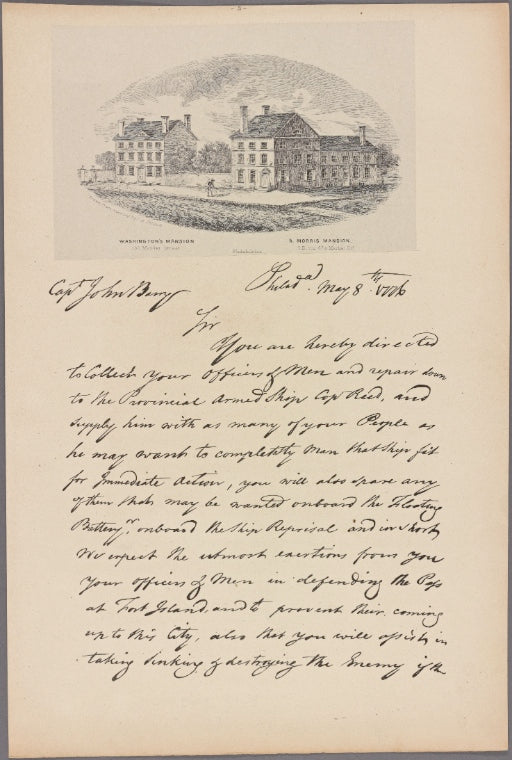 - 5 -
WASHINGTON'S MANSION
R. MORRIS MANSION.
Philadelphia
Capt John Barry
Philad.a May 8.th 1776
Sir
You are hereby directed
to Collect your Officers & Men and repair down
to the Provincial Armed Ship Cap Reed, and
supply him with as many of your People as
he may want to completely Man that Ship fit
for Immediate Action, you will also spare any
of them that may be wanted onboard the Floating
Battery, onboard the Ship Reprisal and in short
We expect the utmost exertions from you
your officers & Men in defending the Pass
at Fort Island and to prevent their coming
up to this City, also that you will assist in
taking sinking & destroying the Enemy if